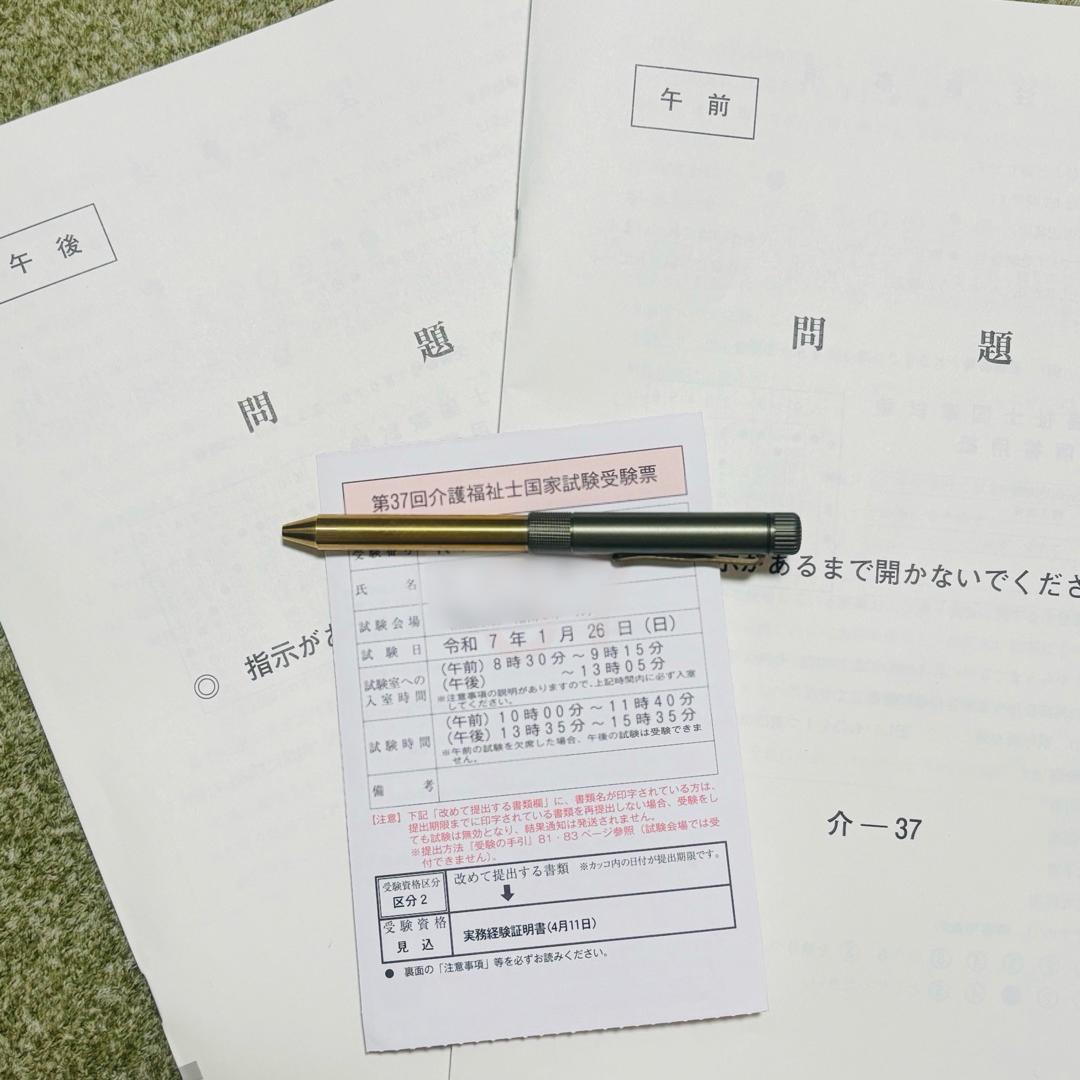 午後
問題
◎ 指示が
午前
問題
があるまで開かないでくださ
介―37
第37回介護福祉士国家試験受験票
受験番号
氏名
試験会場
試験日 令和7年1月26日(日)
試験室への入室時間
(午前)8時30分~9時15分
(午後) ~13時05分
※注意事項の説明がありますので、上記時間内に必ず入室
してください。
試験時間
(午前)10時00分~11時40分
(午後)13時35分~15時35分
※午前の試験を欠席した場合、午後の試験は受験できま
せん。
備考
【注意】下記「改めて提出する書類欄」に、書類名が印字されている方は、
提出期限までに印字されている書類を再提出しない場合、受験をし
ても試験は無効となり、結果通知は発送されません。
※提出方法『受験の手引』81・83ページ参照(試験会場では受
付できません)。
受験資格区分
区分2
改めて提出する書類 ※カッコ内の日付が提出期限です。
⬇
受験資格
見込
実務経験証明書(4月11日)
● 裏面の「注意事項」等を必ずお読みください。